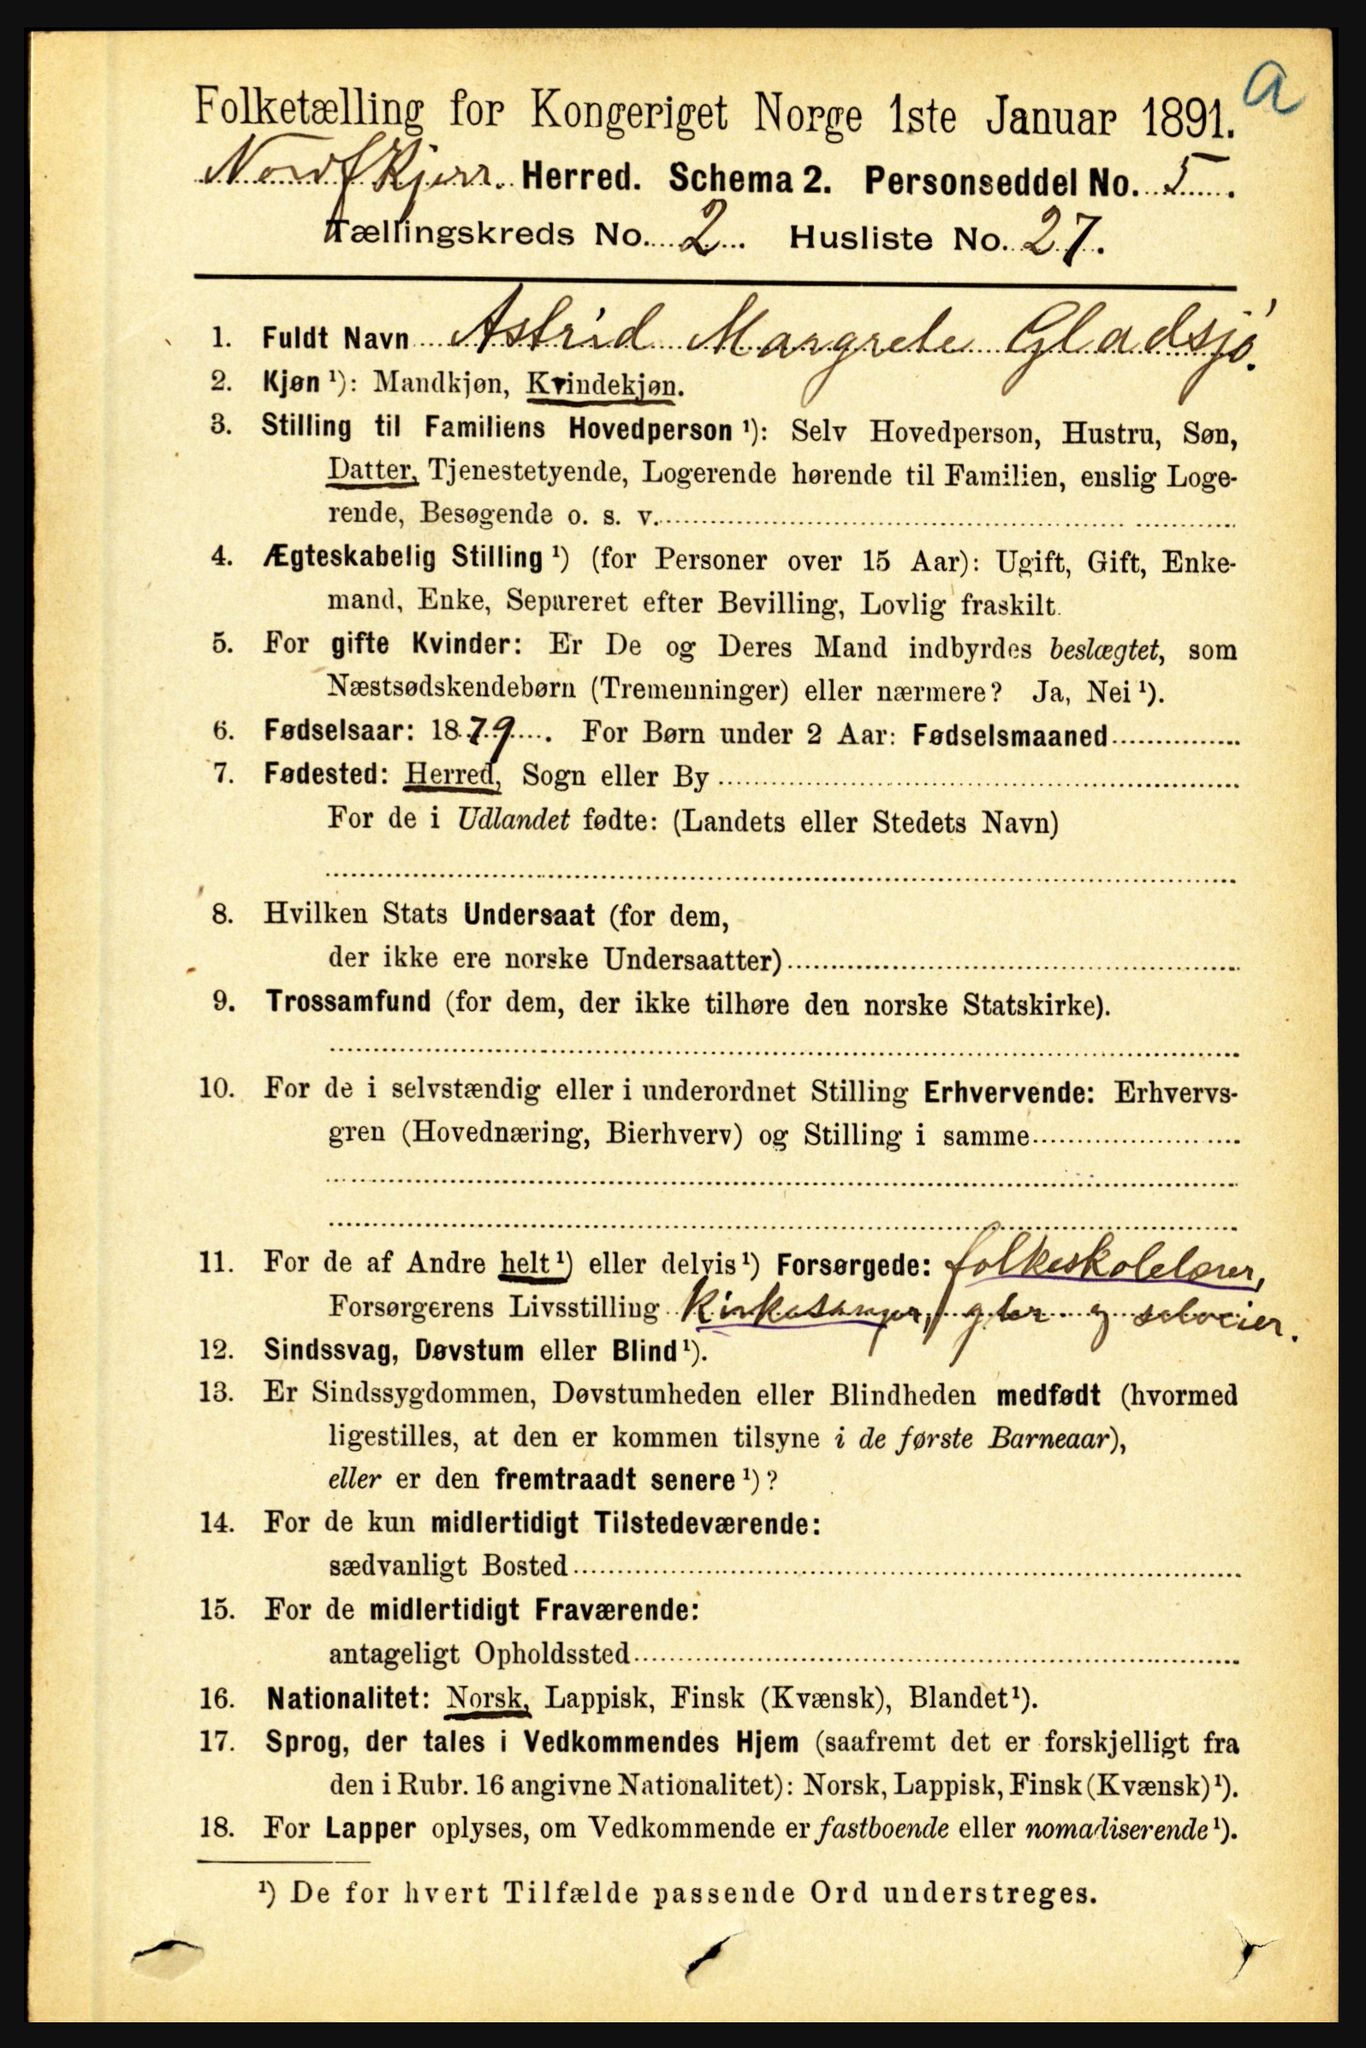 a
Folketælling for Kongeriget Norge 1ste Januar 1891.
Herred. Schema 2. Personseddel No. 5.
Tællingskreds No. 2. Husliste No. 27.
1. Fuldt Navn Astrid Margrete Gladsjö.
2. Kjøn ¹): Mandkjøn, Kvindekjøn.
3. Stilling til Familiens Hovedperson ¹): Selv Hovedperson, Hustru, Søn,
Datter, Tjenestetyende, Logerende hørende til Familien, enslig Loge-
rende, Besøgende o. s. v.
4. Ægteskabelig Stilling ¹) (for Personer over 15 Aar): Ugift, Gift, Enke-
mand, Enke, Separeret efter Bevilling, Lovlig fraskilt.
5. For gifte Kvinder: Er De og Deres Mand indbyrdes beslægtet, som
Næstsødskendebørn (Tremenninger) eller nærmere? Ja, Nei ¹).
6. Fødselsaar: 1879. For Børn under 2 Aar: Fødselsmaaned
7. Fødested: Herred, Sogn eller By
For de i Udlandet fødte: (Landets eller Stedets Navn)
8. Hvilken Stats Undersaat (for dem,
der ikke ere norske Undersaatter)
9. Trossamfund (for dem, der ikke tilhøre den norske Statskirke).
10. For de i selvstændig eller i underordnet Stilling Erhvervende: Erhvervs-
gren (Hovednæring, Bierhverv) og Stilling i samme
11. For de af Andre helt ¹) eller delvis ¹) Forsørgede: folkeskolelærer,
Forsørgerens Livsstilling kirkesanger, gbr. og selveier.
12. Sindssvag, Døvstum eller Blind ¹).
13. Er Sindssygdommen, Døvstumheden eller Blindheden medfødt (hvormed
ligestilles, at den er kommen tilsyne i de første Barneaar),
eller er den fremtraadt senere ¹)?
14. For de kun midlertidigt Tilstedeværende:
sædvanligt Bosted
15. For de midlertidigt Fraværende:
antageligt Opholdssted
16. Nationalitet: Norsk, Lappisk, Finsk (Kvænsk), Blandet ¹).
17. Sprog, der tales i Vedkommendes Hjem (saafremt det er forskjelligt fra
den i Rubr. 16 angivne Nationalitet): Norsk, Lappisk, Finsk (Kvænsk) ¹).
18. For Lapper oplyses, om Vedkommende er fastboende eller nomadiserende ¹).
¹) De for hvert Tilfælde passende Ord understreges.